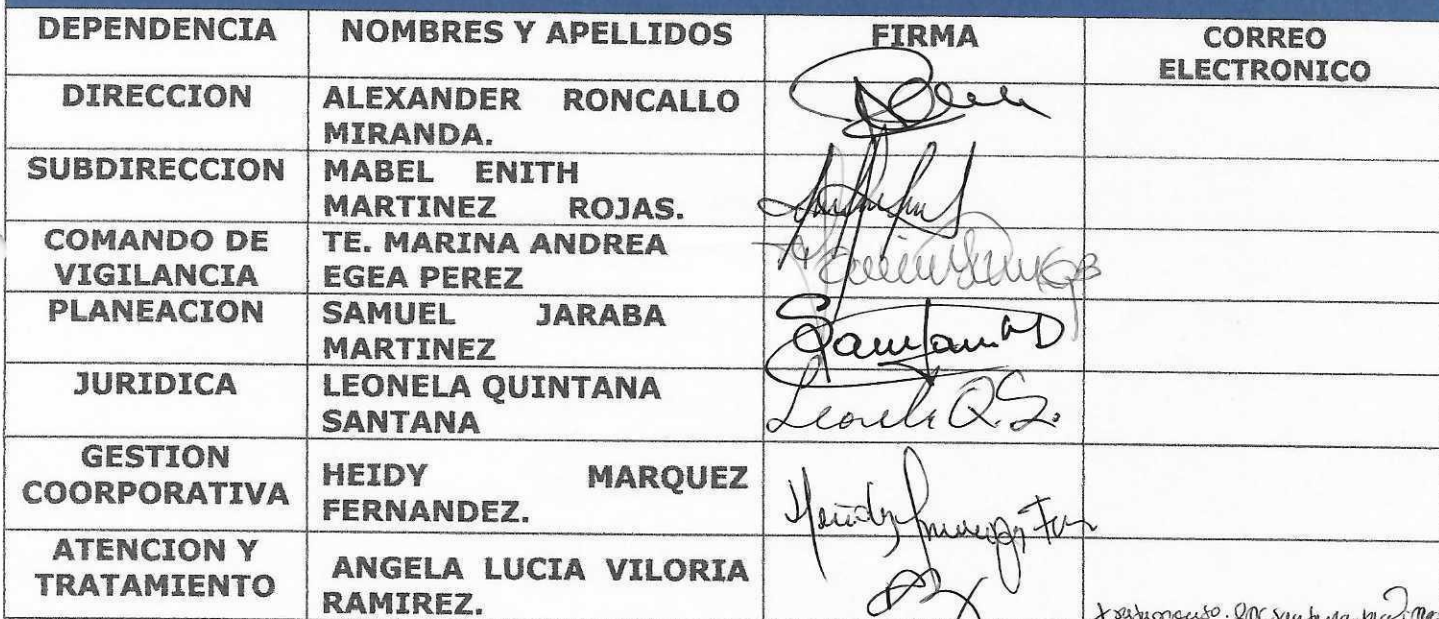 DEPENDENCIA
NOMBRES Y APELLIDOS
FIRMA
CORREO
ELECTRONICO
DIRECCION
ALEXANDER RONCALLO
MIRANDA.
SUBDIRECCION
MABEL ENITH
MARTINEZ ROJAS.
COMANDO DE
VIGILANCIA
TE. MARINA ANDREA
EGEA PEREZ
PLANEACION
SAMUEL JARABA
MARTINEZ
JURIDICA
LEONELA QUINTANA
SANTANA
Leonela Q.S.
GESTION
COORPORATIVA
HEIDY MARQUEZ
FERNANDEZ.
ATENCION Y
TRATAMIENTO
ANGELA LUCIA VILORIA
RAMIREZ.